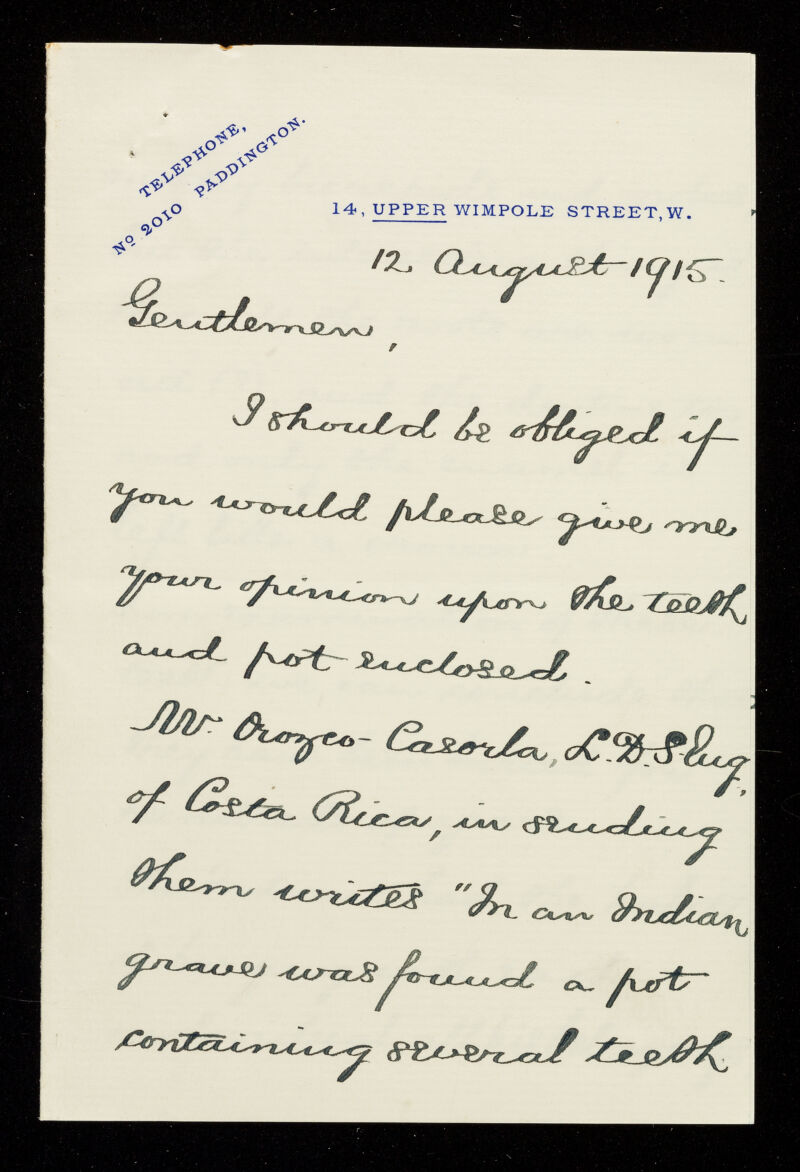 TELEPHONE,
Nº 2010 PADDINGTON.
14, UPPER WIMPOLE STREET, W.
12 August 1915.
Gentlemen,
I should be obliged if
you would please give me
your opinion upon the teeth
and pot enclosed.
Mr. Orozco-Casorla, L.D.S. Eng,
of Costa Rica, in sending
them writes "In an Indian
grave was found a pot
containing several teeth